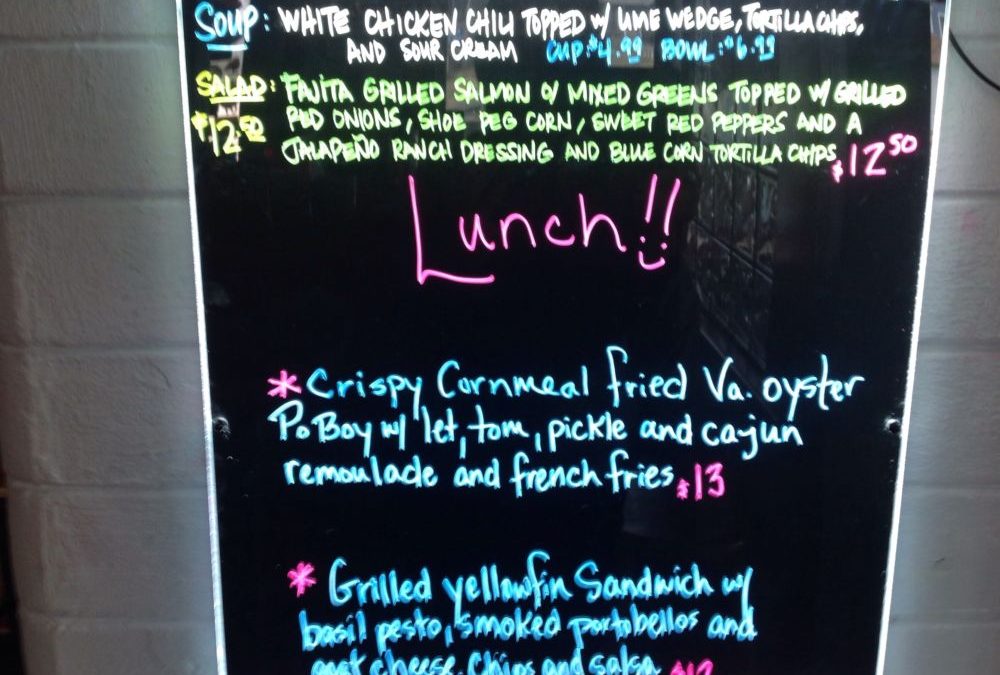 SOUP: WHITE CHICKEN CHILI TOPPED w/ LIME WEDGE, TORTILLA CHIPS,
AND SOUR CREAM CUP: $4.99 BOWL: $6.99
SALAD: FAJITA GRILLED SALMON O/ MIXED GREENS TOPPED W/ GRILLED
$12.50 RED ONIONS, SHOE PEG CORN, SWEET RED PEPPERS AND A
JALAPEÑO RANCH DRESSING AND BLUE CORN TORTILLA CHIPS $12.50
Lunch!!
* Crispy Cornmeal fried Va. oyster
Po Boy w/ let, tom, pickle and cajun
remoulade and french fries $13
* Grilled yellowfin Sandwich w/
basil pesto, smoked portobellos and
goat cheese. chips and salsa